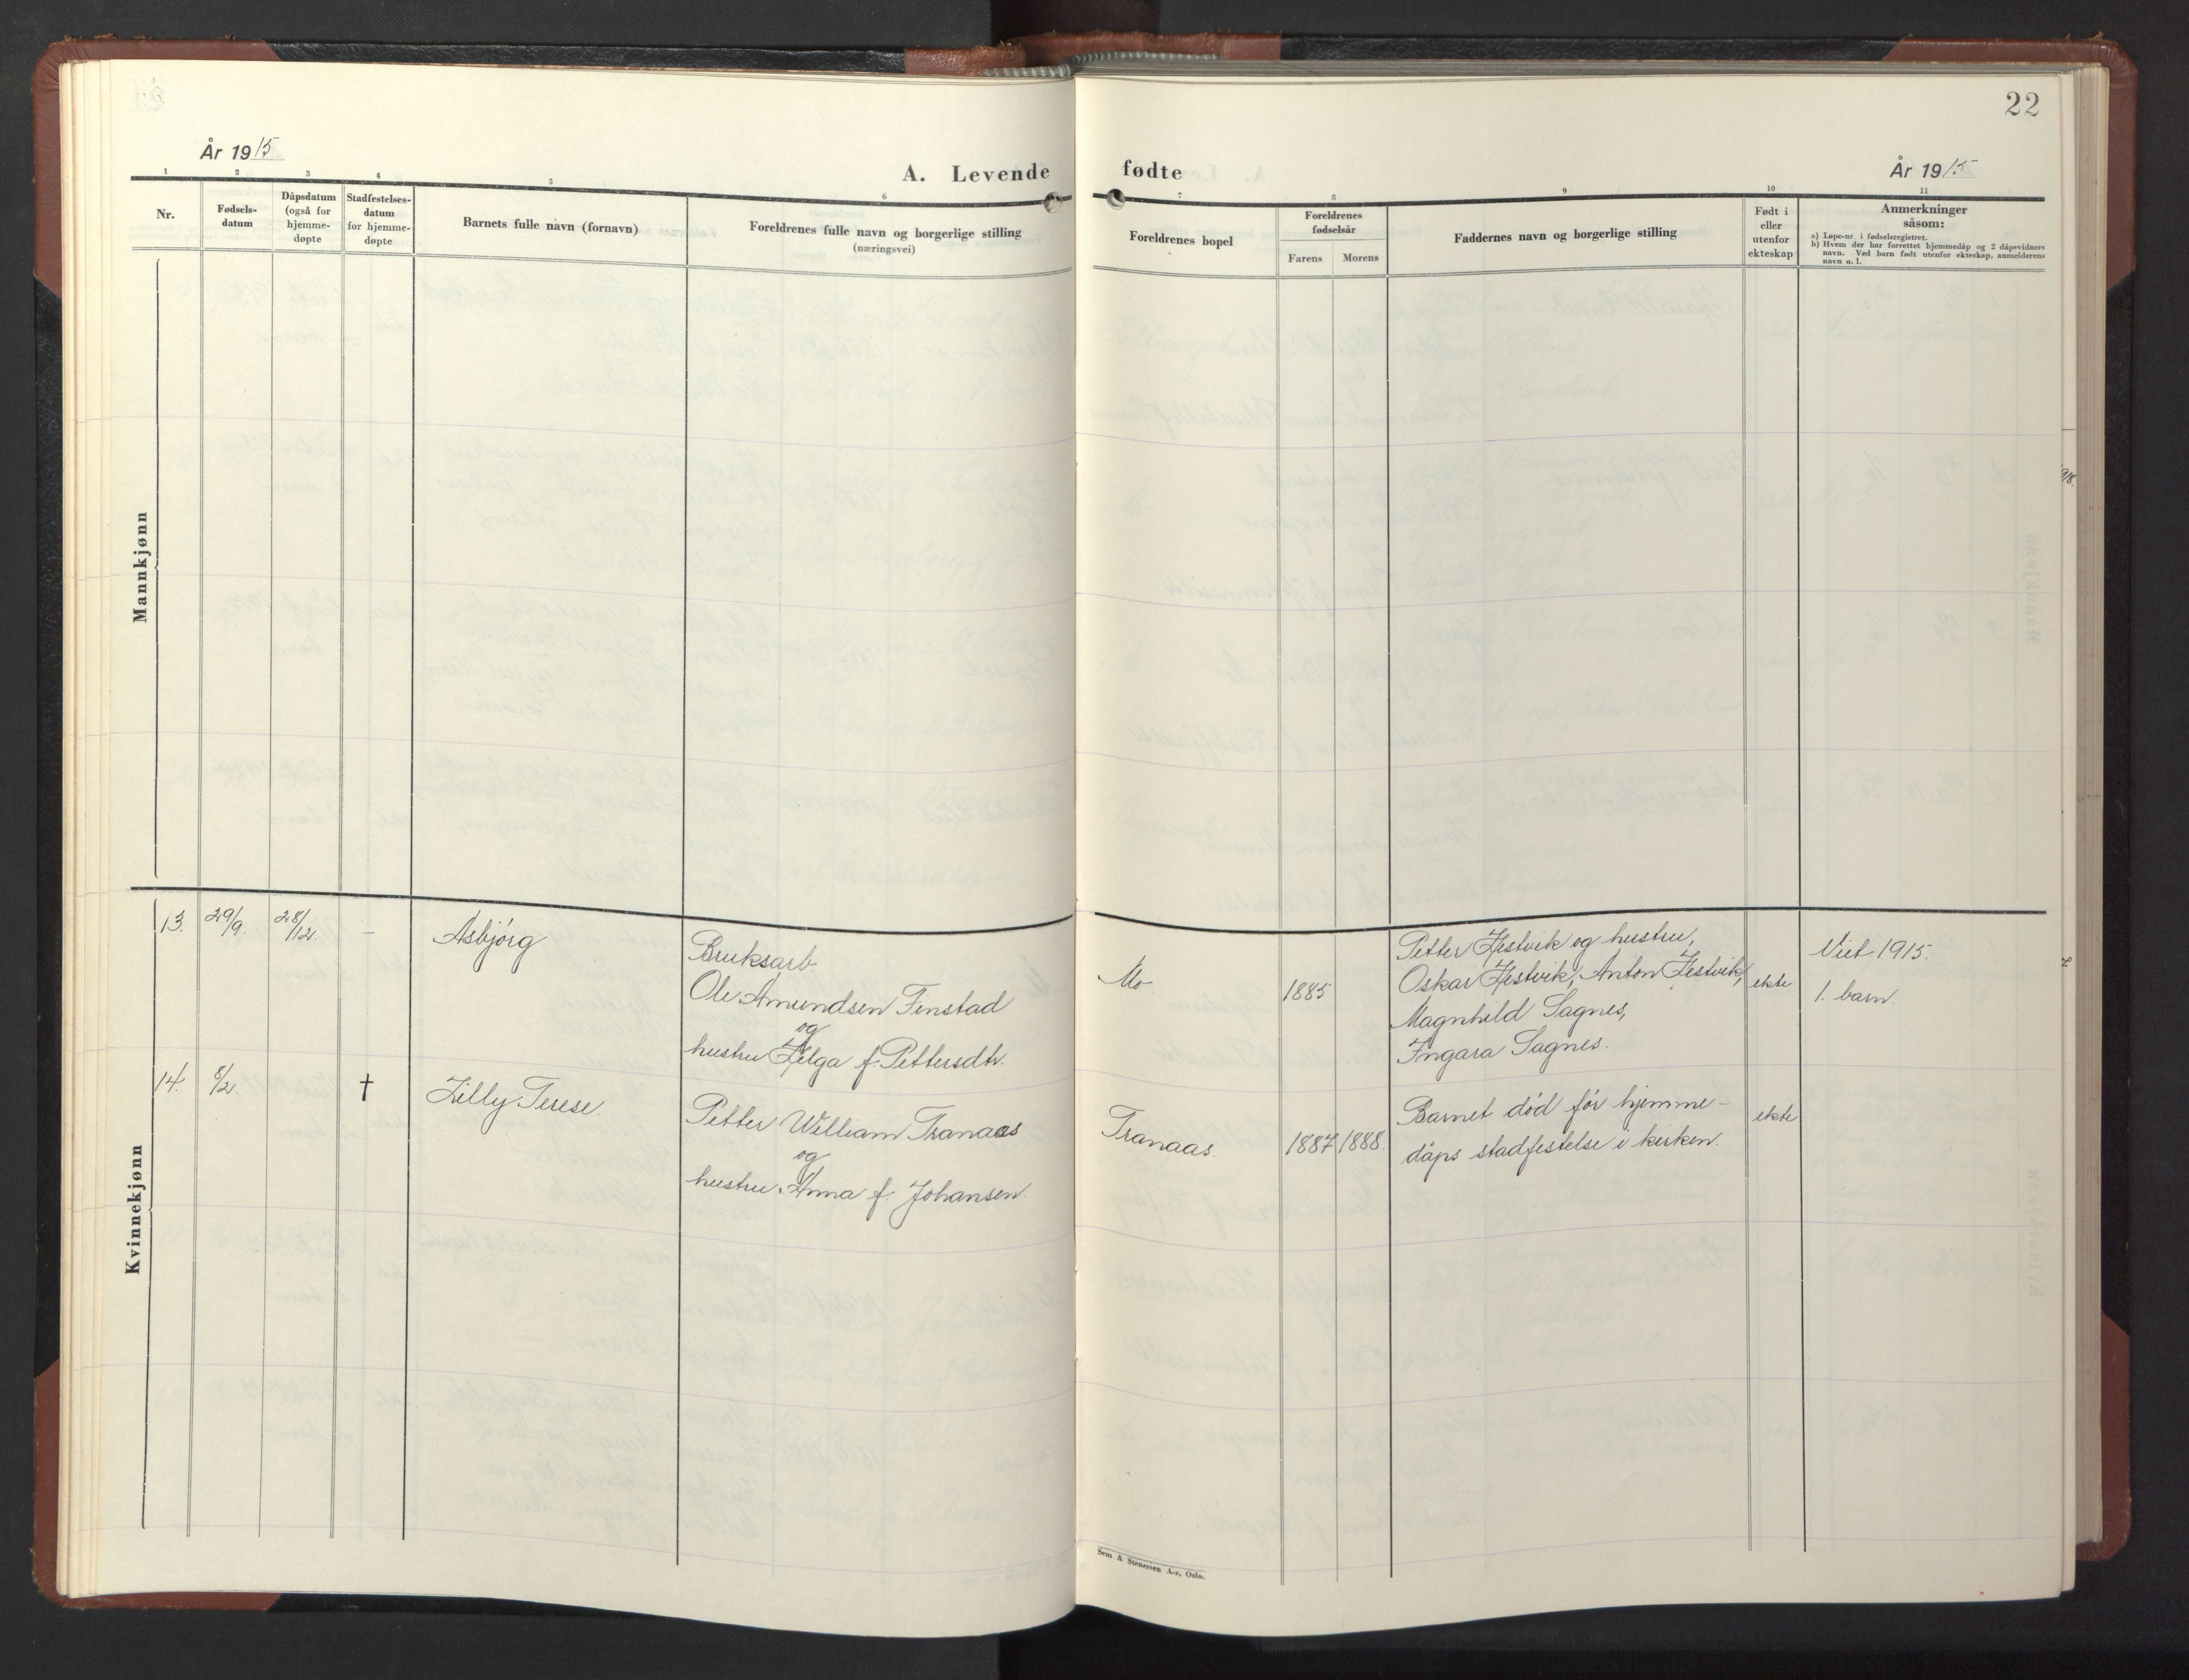 22
År 1915
A. Levende
fødte
År 1915
1 2 3 4 5 6 7 8 9 10 11
Nr.
Fødsels-
datum
Dåpsdatum
(også for
hjemme-
døpte
Stadfestelses-
datum
for hjemme-
døpte
Barnets fulle navn (fornavn)
Foreldrenes fulle navn og borgerlige stilling
(næringsvei)
Foreldrenes bopel
Foreldrenes
fødselsår
Farens Morens
Faddernes navn og borgerlige stilling
Født i
eller
utenfor
ekteskap
Anmerkninger
såsom:
a) Løpe-nr. i fødselsregistret.
b) Hvem der har forrettet hjemmedåp og 2 dåpsvidners
navn. Ved barn født utenfor ekteskap, anmelderens
navn o. l.
Mannkjønn
Kvinnekjønn
13. 29/9. 28/12. – Asbjørg
Bruksarb.
Ole Amundsen Finstad
og
hustru Helga f. Pettersdtr.
Mo
1885
Petter Hestvik og hustru,
Oskar Hestvik, Anton Hestvik,
Magnhild Sagnes,
Ingara Sagnes.
ekte
Viet 1915.
1. barn.
14. 8/2. † Lilly Terese.
Petter William Tranaas
og
hustru Anna f. Johansen.
Tranaas.
1887 1888.
Barnet død før hjemme-
dåps stadfestelse i kirken.
ekte
Sem & Stenersen A-s, Oslo.